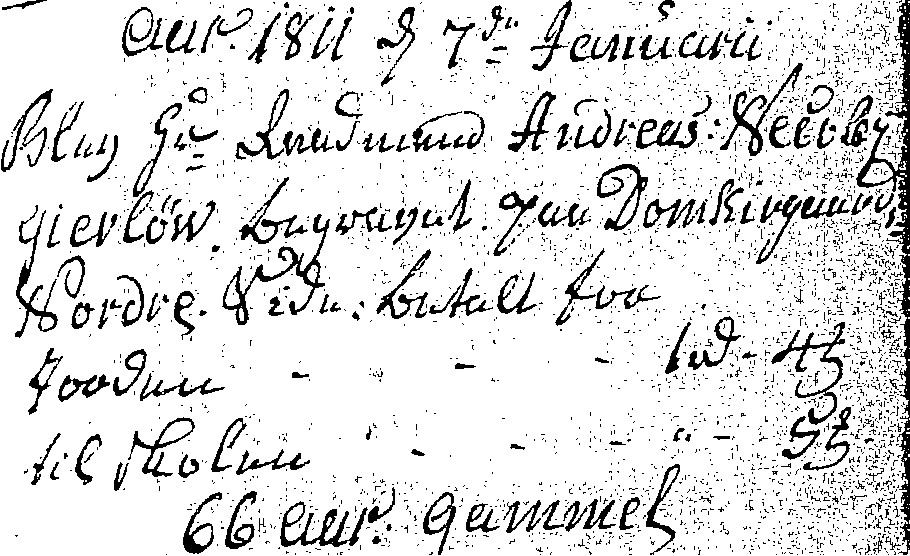 Aar. 1811 d 7de Januarii
Blev Hr Raadmand Andreas: Neebye
Gierlöw. begravet. paa Domkirgaard,
Nordre. Side: betalt for
Jorden - - - 1rd - 4 ß
til Skolen - - - " - 5 ß
66 Aar. gammel